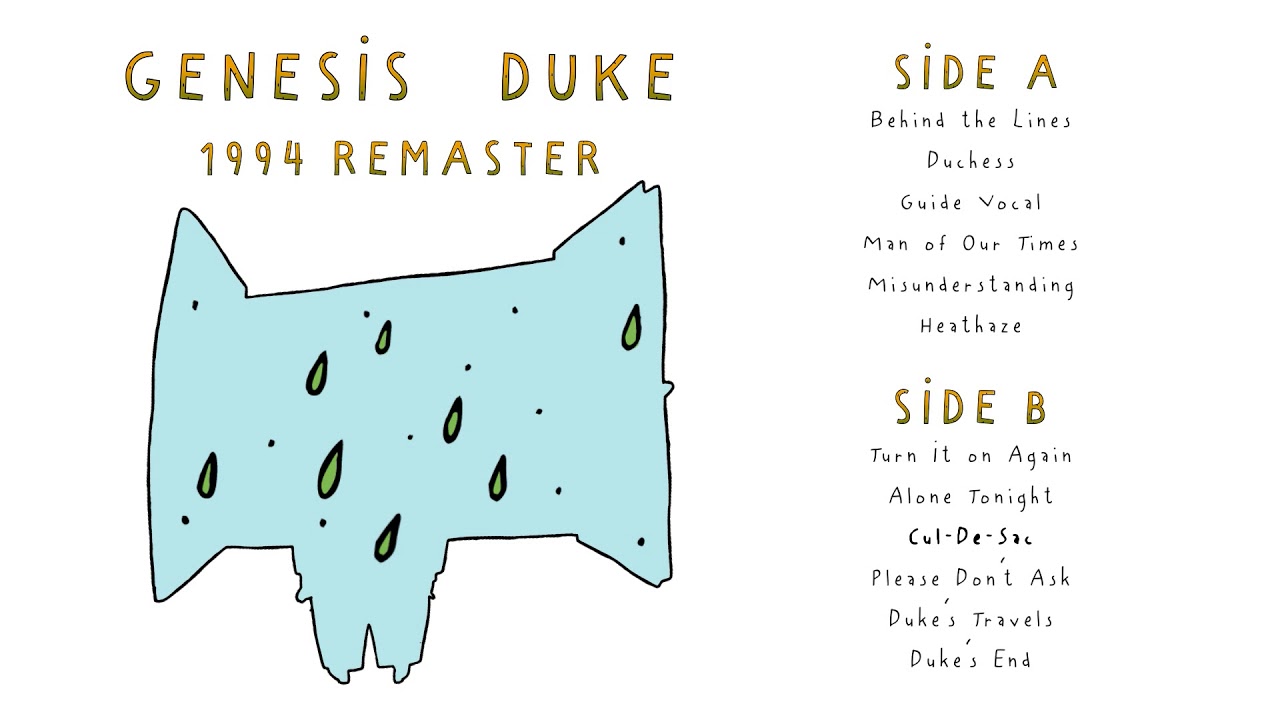 GENESIS DUKE
1994 REMASTER
SIDE A
Behind the Lines
Duchess
Guide Vocal
Man of Our Times
Misunderstanding
Heathaze
SIDE B
Turn it on Again
Alone Tonight
Cul-De-Sac
Please Don't Ask
Duke's Travels
Duke's End